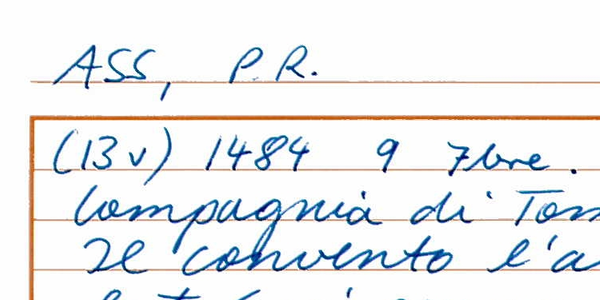 ASS, P.R.
(13v) 1484 9 7bre.
Compagnia di Tom
Il convento l'a